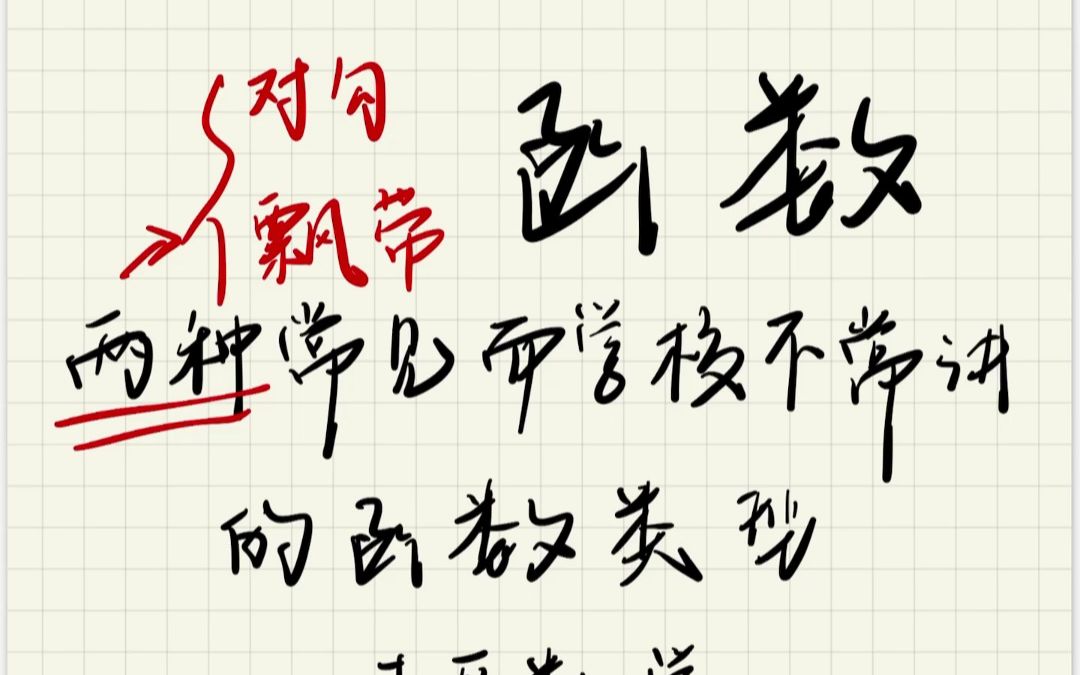 对勾
函数
飘带
两种常见而学校不常讲
的函数类型